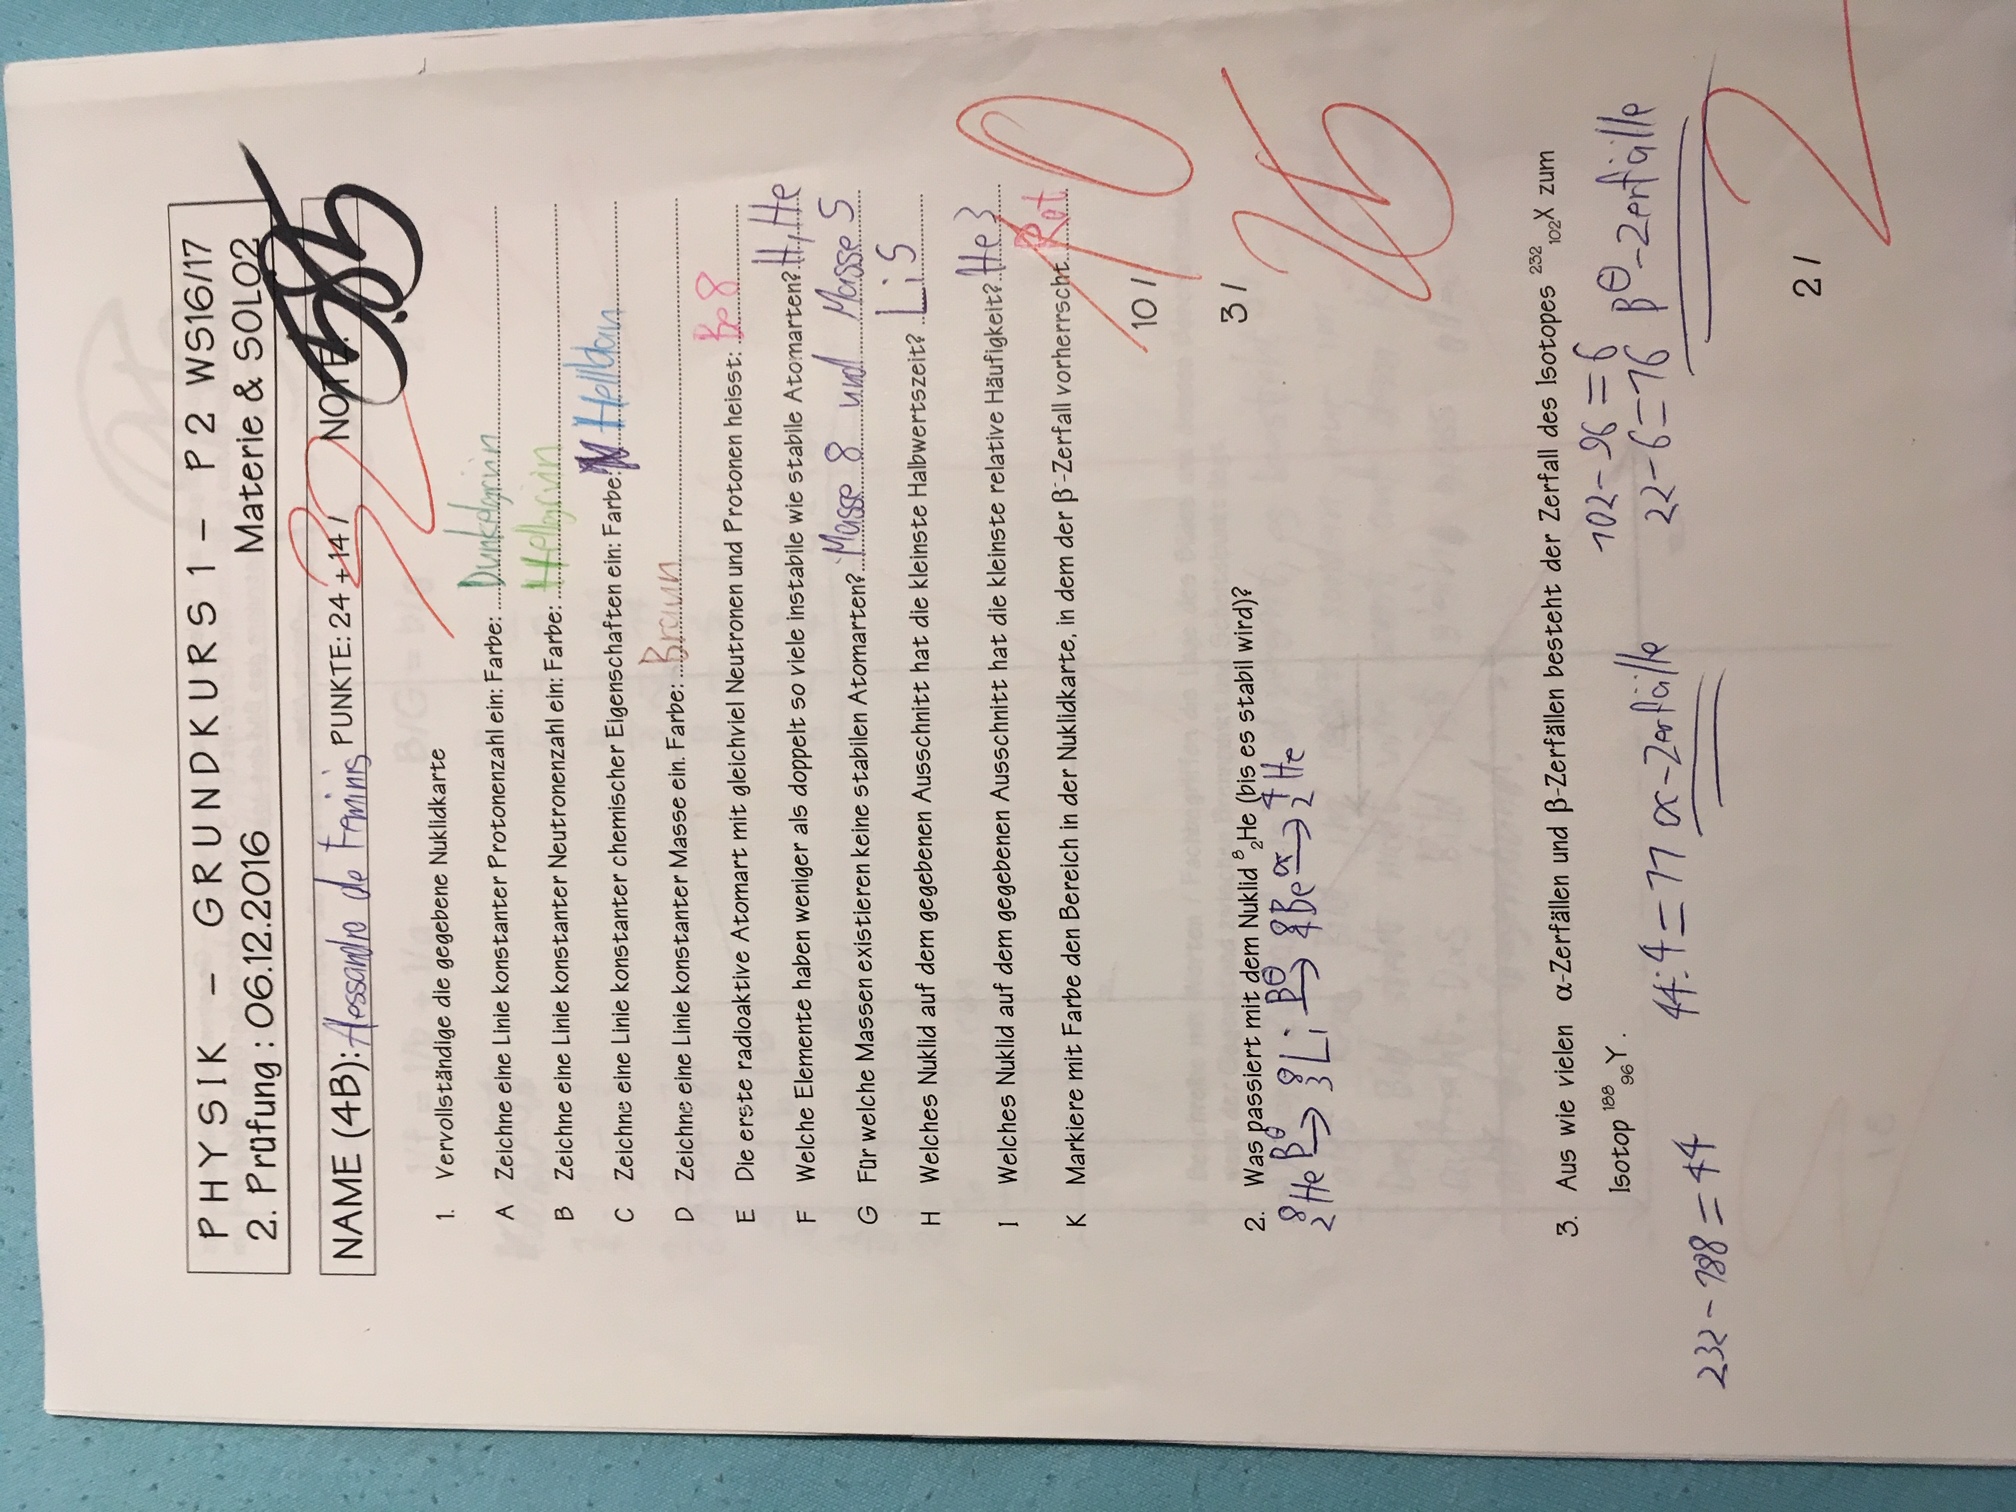 PHYSIK – GRUNDKURS 1 – P2 WS16/17
2. Prüfung : 06.12.2016 Materie & SOLO2
NAME (4B): Alessandro de Feminis PUNKTE: 24 + 14 / 32 NOTE: 5.85
1. Vervollständige die gegebene Nuklidkarte
A Zeichne eine Linie konstanter Protonenzahl ein: Farbe: Dunkelgrün
B Zeichne eine Linie konstanter Neutronenzahl ein: Farbe: Hellgrün
C Zeichne eine Linie konstanter chemischer Eigenschaften ein: Farbe: Hellblau
D Zeichne eine Linie konstanter Masse ein. Farbe: Braun
E Die erste radioaktive Atomart mit gleichviel Neutronen und Protonen heisst: Be 8
F Welche Elemente haben weniger als doppelt so viele instabile wie stabile Atomarten? H, He
G Für welche Massen existieren keine stabilen Atomarten? Masse 8 und Masse 5
H Welches Nuklid auf dem gegebenen Ausschnitt hat die kleinste Halbwertszeit? Li 5
I Welches Nuklid auf dem gegebenen Ausschnitt hat die kleinste relative Häufigkeit? He 3
K Markiere mit Farbe den Bereich in der Nuklidkarte, in dem der β⁻-Zerfall vorherrscht. Rot
10 / 10
3 /
2. Was passiert mit dem Nuklid ⁸₂He (bis es stabil wird)?
⁸₂He β⊖→ ⁸₃Li β⊖→ ⁸₄Be α→ ⁴₂He
3. Aus wie vielen α-Zerfällen und β-Zerfällen besteht der Zerfall des Isotopes ²³²₁₀₂X zum
Isotop ¹⁸⁸₉₆Y .
102-96=6
232-188=44 44:4=11 α-Zerfälle 22-6=16 β⊖-Zerfälle
2 / 2